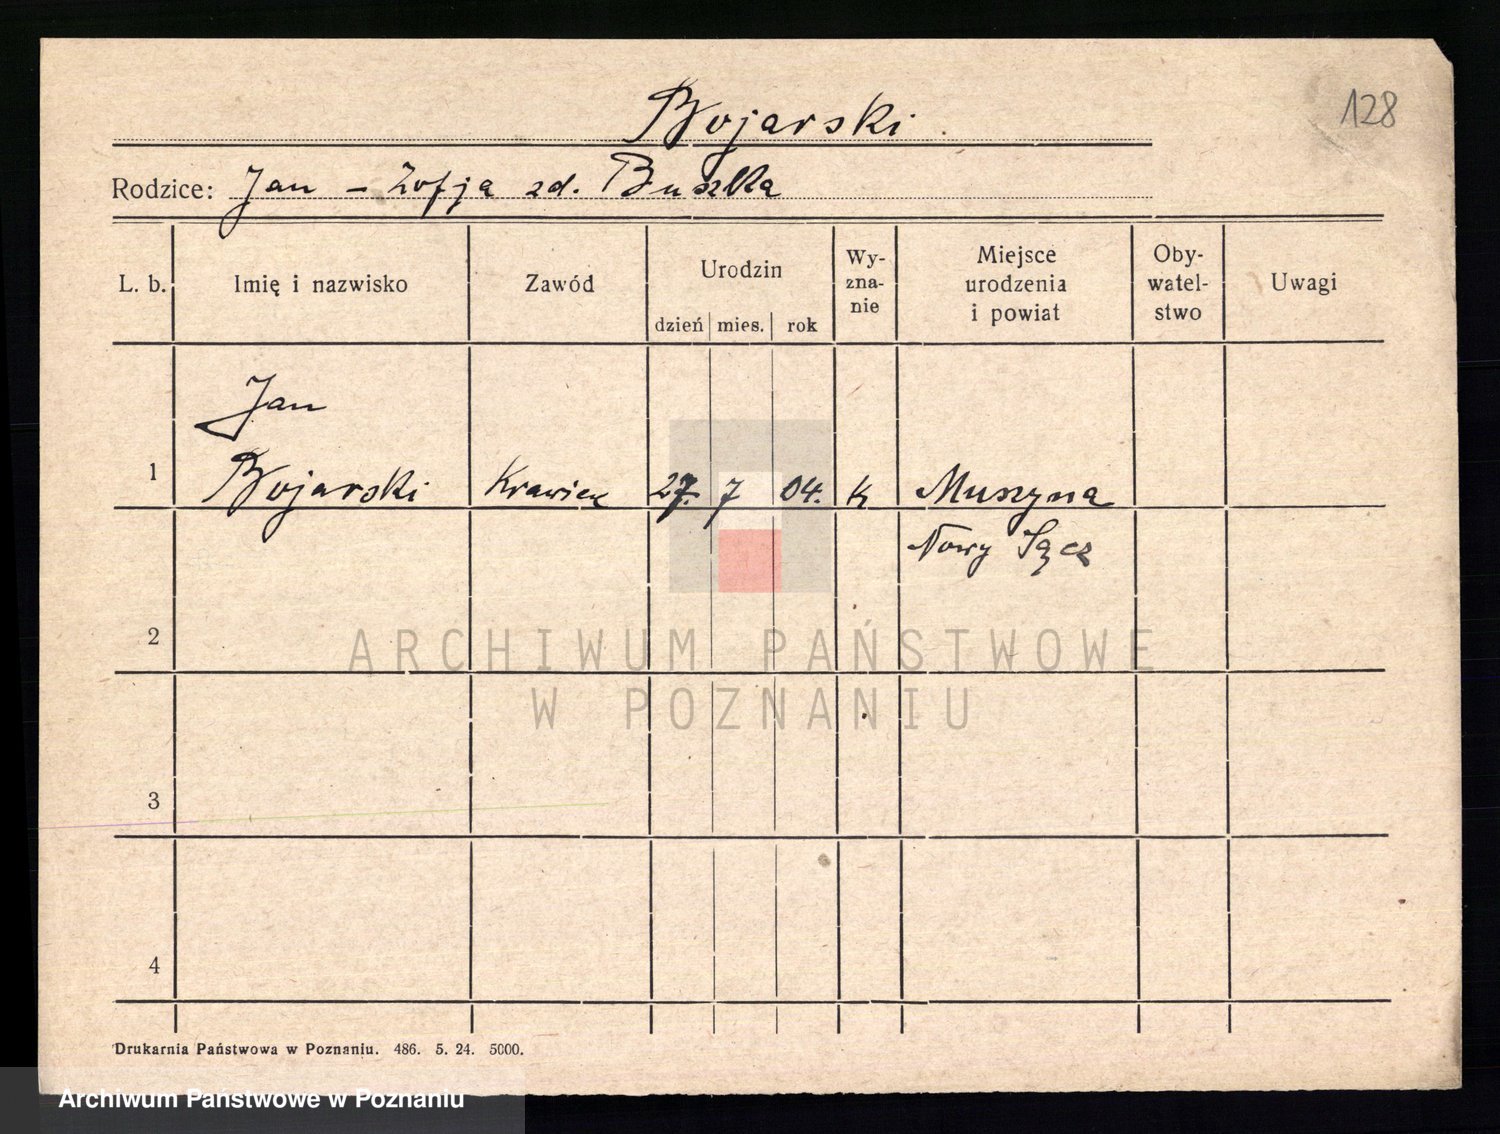 128
Bojarski
Rodzice: Jan – Zofja zd. Buszka
L. b. Imię i nazwisko Zawód Urodzin dzień mies. rok Wy-zna-nie Miejsce urodzenia i powiat Oby-watel-stwo Uwagi
Jan
1 Bojarski Krawiec 27. 7 04. K Muszyna
Nowy Sącz
2
ARCHIWUM PAŃSTWOWE
W POZNANIU
3
4
Drukarnia Państwowa w Poznaniu. 486. 5. 24. 5000.
Archiwum Państwowe w Poznaniu